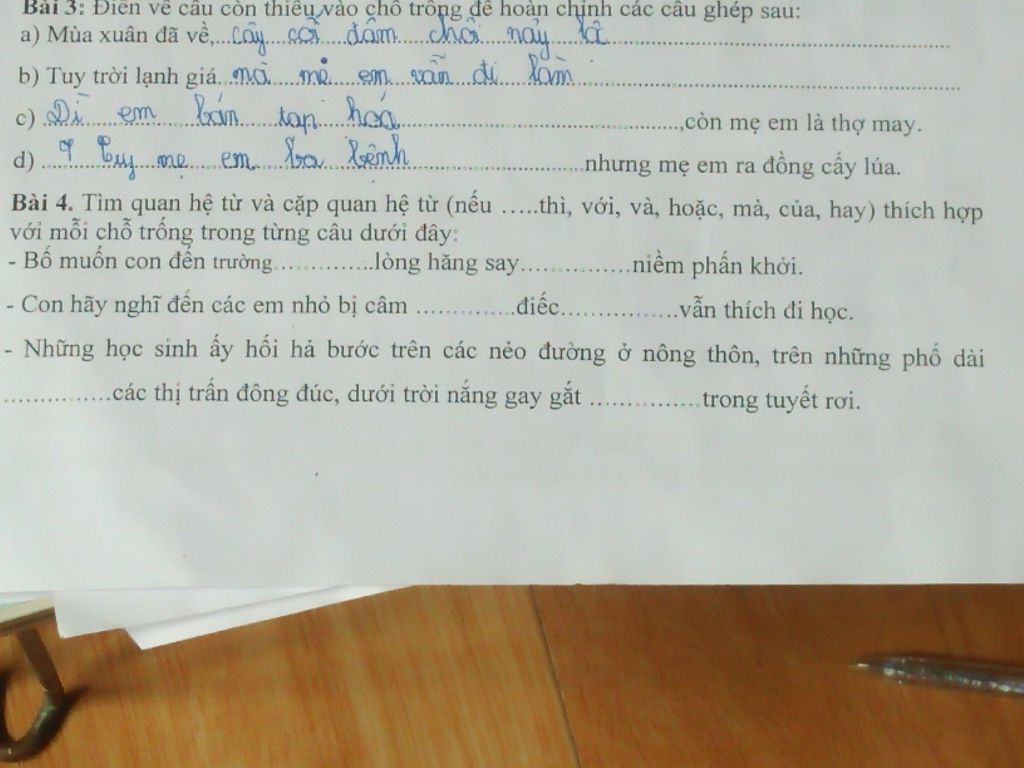 Bài 3: Điền vế câu còn thiếu vào chỗ trống để hoàn chỉnh các câu ghép sau:
a) Mùa xuân đã về,..cây cối đâm chồi nảy lá..............
b) Tuy trời lạnh giá..mà mẹ em vẫn đi làm..............
c) Dì em bán tạp hoá..............,còn mẹ em là thợ may.
d) Tuy mẹ em ba bệnh..............nhưng mẹ em ra đồng cấy lúa.
Bài 4. Tìm quan hệ từ và cặp quan hệ từ (nếu …..thì, với, và, hoặc, mà, của, hay) thích hợp
với mỗi chỗ trống trong từng câu dưới đây:
- Bố muốn con đến trường…………..lòng hăng say……………niềm phấn khởi.
- Con hãy nghĩ đến các em nhỏ bị câm …………..điếc…………….vẫn thích đi học.
- Những học sinh ấy hối hả bước trên các nẻo đường ở nông thôn, trên những phố dài
……………các thị trấn đông đúc, dưới trời nắng gay gắt ……………trong tuyết rơi.